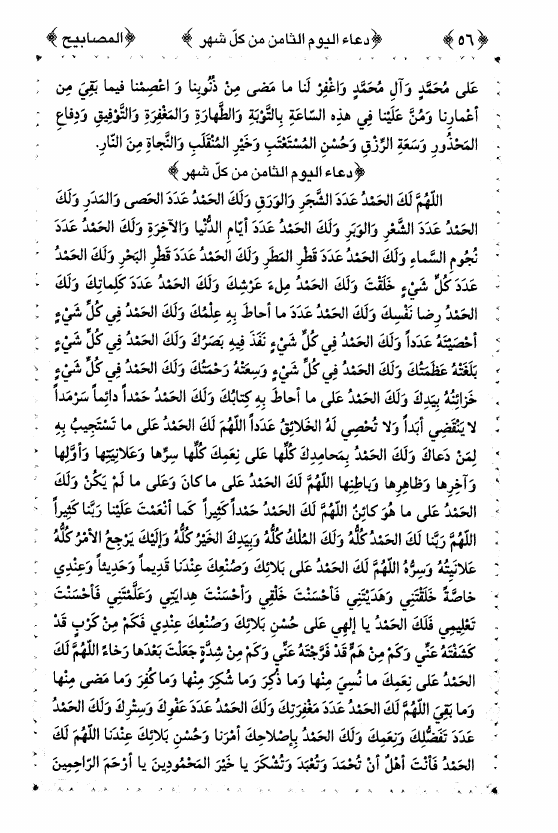 ﴿٥٦﴾ ﴿دعاء اليوم الثامن من كلّ شهر﴾ ﴿المصابيح﴾
عَلى مُحَمَّدٍ وَآلِ مُحَمَّدٍ وَاغْفِرْ لَنا ما مَضى مِنْ ذُنُوبِنا وَ اعْصِمْنا فيما بَقِيَ مِن
أعْمارِنا وَمُنَّ عَلَيْنا فِي هذِهِ السّاعَةِ بِالتَّوْبَةِ وَالطَّهارَةِ وَالمَغْفِرَةِ وَالتَّوْفِيقِ وَدِفاعِ
المَحْذُورِ وَسَعَةِ الرِّزْقِ وَحُسْنِ المُسْتَعْتَبِ وَخَيْرِ المُنْقَلَبِ وَالنَّجاةِ مِنَ النّارِ.
﴿دعاء اليوم الثامن من كلّ شهر﴾
اللّهُمَّ لَكَ الحَمْدُ عَدَدَ الشَّجَرِ وَالوَرَقِ وَلَكَ الحَمْدُ عَدَدَ الحَصى وَالمَدَرِ وَلَكَ
الحَمْدُ عَدَدَ الشَّعْرِ وَالوَبَرِ وَلَكَ الحَمْدُ عَدَدَ أيّامِ الدُّنْيا وَالآخِرَةِ وَلَكَ الحَمْدُ عَدَدَ
نُجُومِ السَّماءِ وَلَكَ الحَمْدُ عَدَدَ قَطْرِ المَطَرِ وَلَكَ الحَمْدُ عَدَدَ قَطْرِ البَحْرِ وَلَكَ الحَمْدُ
عَدَدَ كُلِّ شَيْءٍ خَلَقْتَ وَلَكَ الحَمْدُ مِلءَ عَرْشِكَ وَلَكَ الحَمْدُ عَدَدَ كَلِماتِكَ وَلَكَ
الحَمْدُ رِضا نَفْسِكَ وَلَكَ الحَمْدُ عَدَدَ ما أحاطَ بِهِ عِلْمُكَ وَلَكَ الحَمْدُ فِي كُلِّ شَيْءٍ
أحْصَيْتَهُ عَدَداً وَلَكَ الحَمْدُ فِي كُلِّ شَيْءٍ نَفَذَ فِيهِ بَصَرُكَ وَلَكَ الحَمْدُ فِي كُلِّ شَيْءٍ
بَلَغَتْهُ عَظَمَتُكَ وَلَكَ الحَمْدُ فِي كُلِّ شَيْءٍ وَسِعَتْهُ رَحْمَتُكَ وَلَكَ الحَمْدُ فِي كُلِّ شَيْءٍ
خَزائِنُهُ بِيَدِكَ وَلَكَ الحَمْدُ عَلى ما أحاطَ بِهِ كِتابُكَ وَلَكَ الحَمْدُ حَمْداً دائِماً سَرْمَداً
لا يَنْقَضِي أبَداً وَلا تُحْصِي لَهُ الخَلائِقُ عَدَداً اللّهُمَّ لَكَ الحَمْدُ عَلى ما تَسْتَجِيبُ بِهِ
لِمَنْ دَعاكَ وَلَكَ الحَمْدُ بِمَحامِدِكَ كُلِّها عَلى نِعَمِكَ كُلِّها سِرِّها وَعَلانِيَتِها وَأوَّلِها
وَآخِرِها وَظاهِرِها وَباطِنِها اللّهُمَّ لَكَ الحَمْدُ عَلى ما كانَ وَعَلى ما لَمْ يَكُنْ وَلَكَ
الحَمْدُ عَلى ما هُوَ كائِنٌ اللّهُمَّ لَكَ الحَمْدُ حَمْداً كَثِيراً كَما أنْعَمْتَ عَلَيْنا رَبَّنا كَثِيراً
اللّهُمَّ رَبَّنا لَكَ الحَمْدُ كُلُّهُ وَلَكَ المُلْكُ كُلُّهُ وَبِيَدِكَ الخَيْرُ كُلُّهُ وَإلَيْكَ يَرْجِعُ الأمْرُ كُلُّهُ
عَلانِيَتُهُ وَسِرُّهُ اللّهُمَّ لَكَ الحَمْدُ عَلى بَلائِكَ وَصُنْعِكَ عِنْدَنا قَدِيماً وَحَدِيثاً وَعِنْدِي
خاصَّةً خَلَقْتَنِي وَهَدَيْتَنِي فَأحْسَنْتَ خَلْقِي وَأحْسَنْتَ هِدايَتِي وَعَلَّمْتَنِي فَأحْسَنْتَ
تَعْلِيمِي فَلَكَ الحَمْدُ يا إلهِي عَلى حُسْنِ بَلائِكَ وَصُنْعِكَ عِنْدِي فَكَمْ مِنْ كَرْبٍ قَدْ
كَشَفْتَهُ عَنِّي وَكَمْ مِنْ هَمٍّ قَدْ فَرَّجْتَهُ عَنِّي وَكَمْ مِنْ شِدَّةٍ جَعَلْتَ بَعْدَها رَخاءً اللّهُمَّ لَكَ
الحَمْدُ عَلى نِعَمِكَ ما نُسِيَ مِنْها وَما ذُكِرَ وَما شُكِرَ مِنْها وَما كُفِرَ وَما مَضى مِنْها
وَما بَقِيَ اللّهُمَّ لَكَ الحَمْدُ عَدَدَ مَغْفِرَتِكَ وَلَكَ الحَمْدُ عَدَدَ عَفْوِكَ وَسِتْرِكَ وَلَكَ الحَمْدُ
عَدَدَ تَفَضُّلِكَ وَنِعَمِكَ وَلَكَ الحَمْدُ بِإصْلاحِكَ أمْرَنا وَحُسْنِ بَلائِكَ عِنْدَنا اللّهُمَّ لَكَ
الحَمْدُ فَأنْتَ أهْلُ أنْ تُحْمَدَ وَتُعْبَدَ وَتُشْكَرَ يا خَيْرَ المَحْمُودِينَ يا أرْحَمَ الرّاحِمِينَ